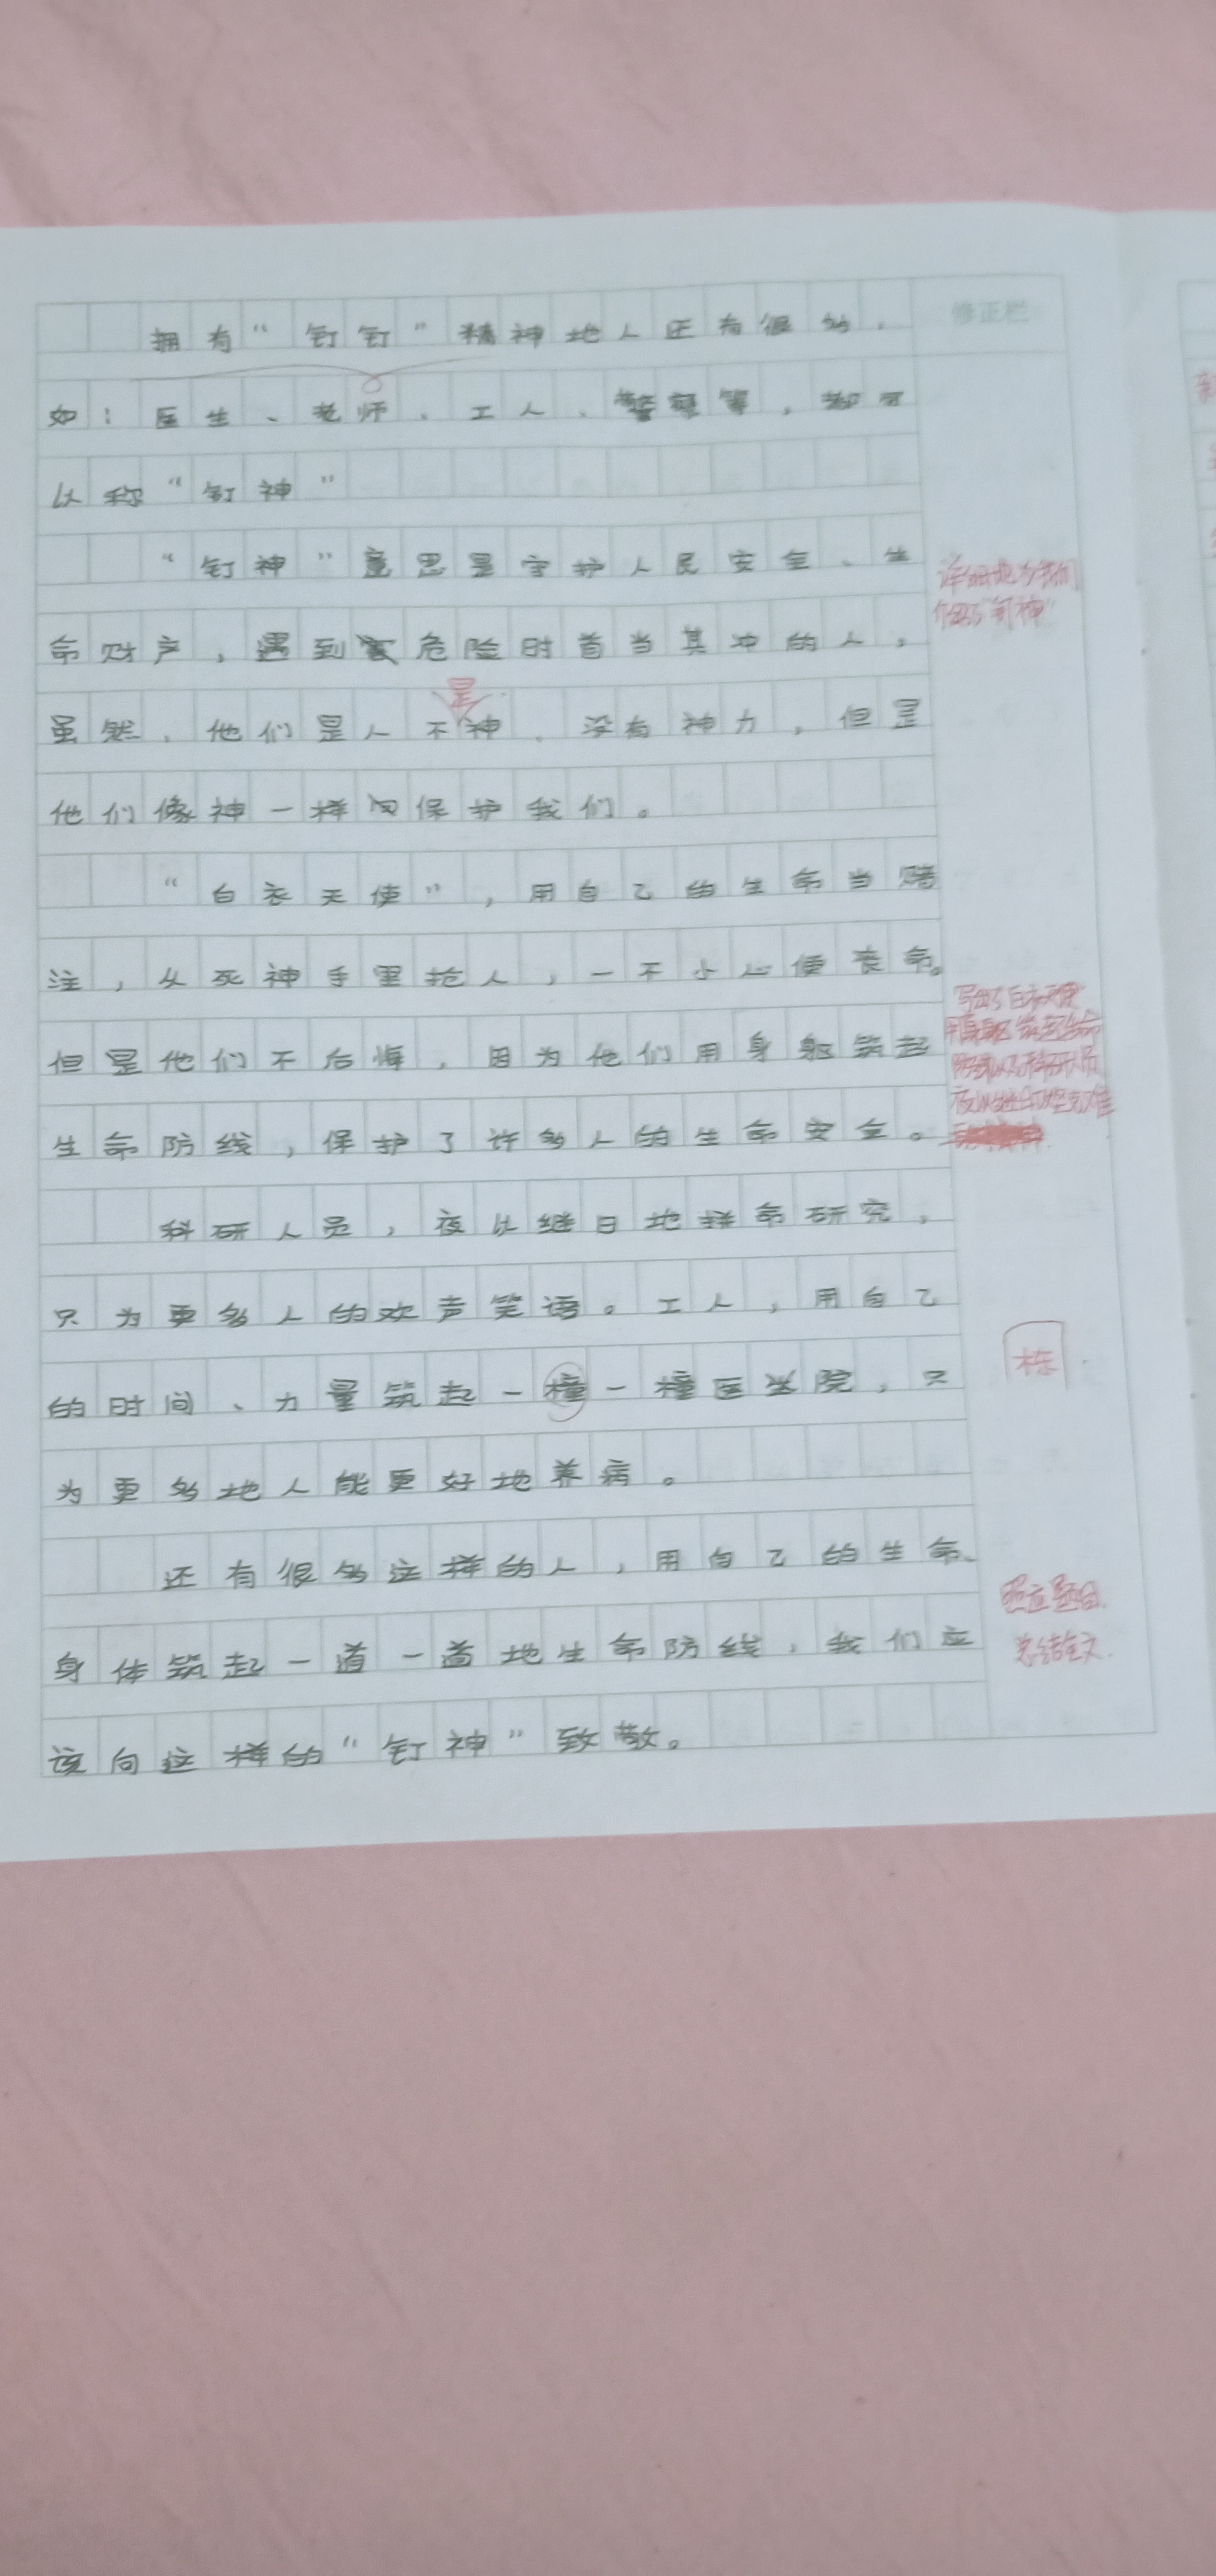 修正栏
拥有“钉钉”精神地人还有很多,
如:医生、老师、工人、警察等,都可
以称“钉神”
“钉神”意思是守护人民安全、生
命财产,遇到危险时首当其冲的人,
虽然,他们是人不是神,没有神力,但是
他们像神一样保护我们。
“白衣天使”,用自己的生命当赌
注,从死神手里抢人,一不小心便丧命。
但是他们不后悔,因为他们用身躯筑起
生命防线,保护了许多人的生命安全。
科研人员,夜以继日地拼命研究,
只为更多人的欢声笑语。工人,用自己
的时间、力量筑起一橦一橦医学院,只
为更多地人能更好地养病。
还有很多这样的人,用自己的生命、
身体筑起一道一道地生命防线,我们应
该向这样的“钉神”致敬。
详细地为我们
介绍了“钉神”
写出了白衣天使
用身躯筑起生命
防线以及科研人员
夜以继日攻坚克难
栋
照应题目
总结全文.